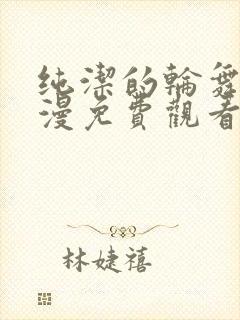 純潔的輪舞
漫免費觀看
林婕禧